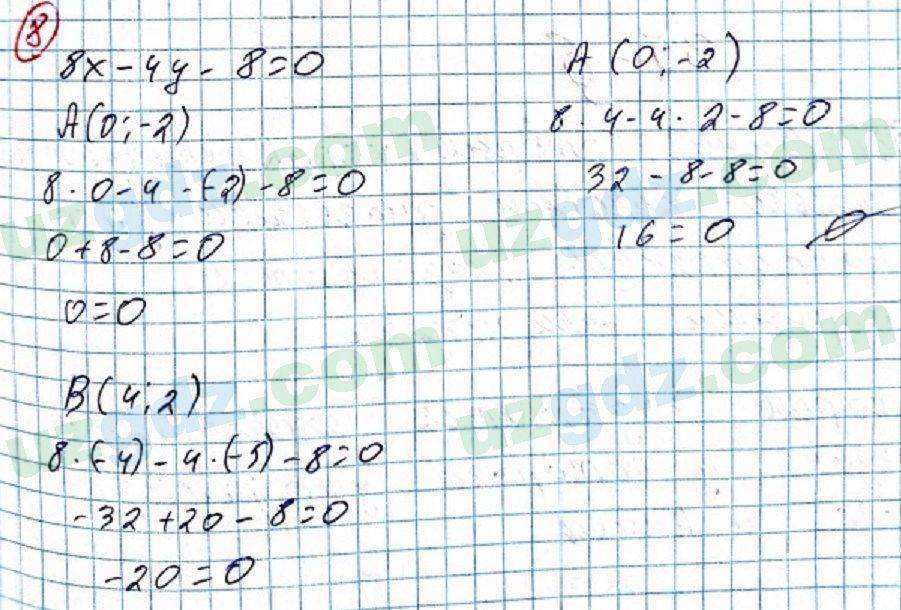 8
8x - 4y - 8 = 0
A(0; -2)
8 · 0 - 4 · (-2) - 8 = 0
0 + 8 - 8 = 0
0 = 0
B(4; 2)
8 · (-4) - 4 · (-5) - 8 = 0
-32 + 20 - 8 = 0
-20 = 0
A (0; -2)
8 · 4 - 4 · 2 - 8 = 0
32 - 8 - 8 = 0
16 = 0 Ø
uzgdz.com
uzgdz.com
uzgdz.com
uzgdz.com